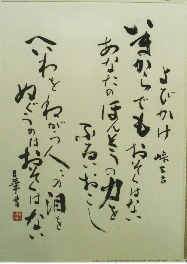 よびかけ
峠三吉
いまからでもおそくはない
あなたのほんとうの力を
ふるいおこし
へいわをねがう人々の泪を
ぬぐうのはおそくはない